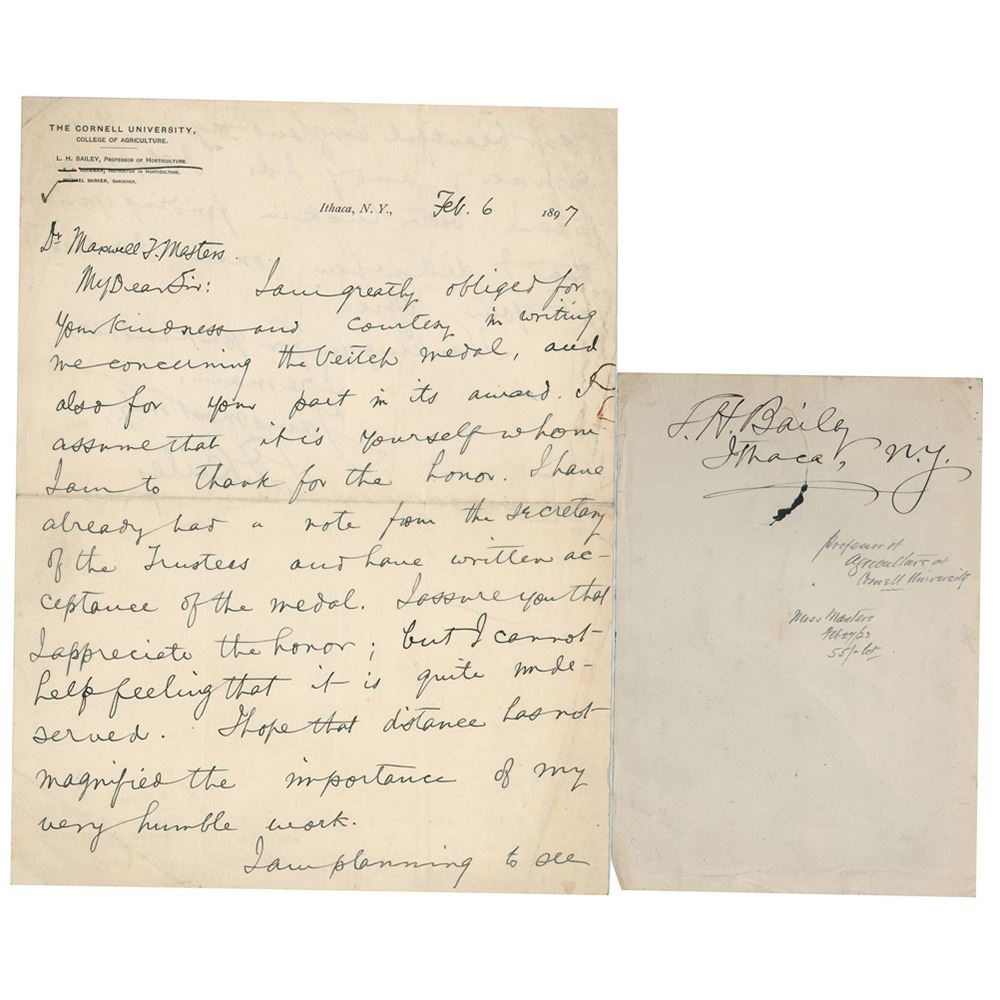 THE CORNELL UNIVERSITY,
COLLEGE OF AGRICULTURE.
L. H. BAILEY, PROFESSOR OF HORTICULTURE.
INSTRUCTOR IN HORTICULTURE.
MICHAEL BARKER, GARDENER.
Ithaca, N. Y., Feb. 6 1897
Dr Maxwell T. Masters.
My Dear Sir: I am greatly obliged for
your kindness and courtesy in writing
me concerning the Veitch medal, and
also for your part in its award. I
assume that it is yourself whom
I am to thank for the honor. I have
already had a note from the secretary
of the Trustees and have written ac-
ceptance of the medal. I assure you that
I appreciate the honor; but I cannot
help feeling that it is quite unde-
served. I hope that distance has not
magnified the importance of my
very humble work.
I am planning to see
L. H. Bailey
Ithaca, N.Y.
Professor of
Agriculture at
Cornell University
Miss Masters
Feb 27/23
55/- lot